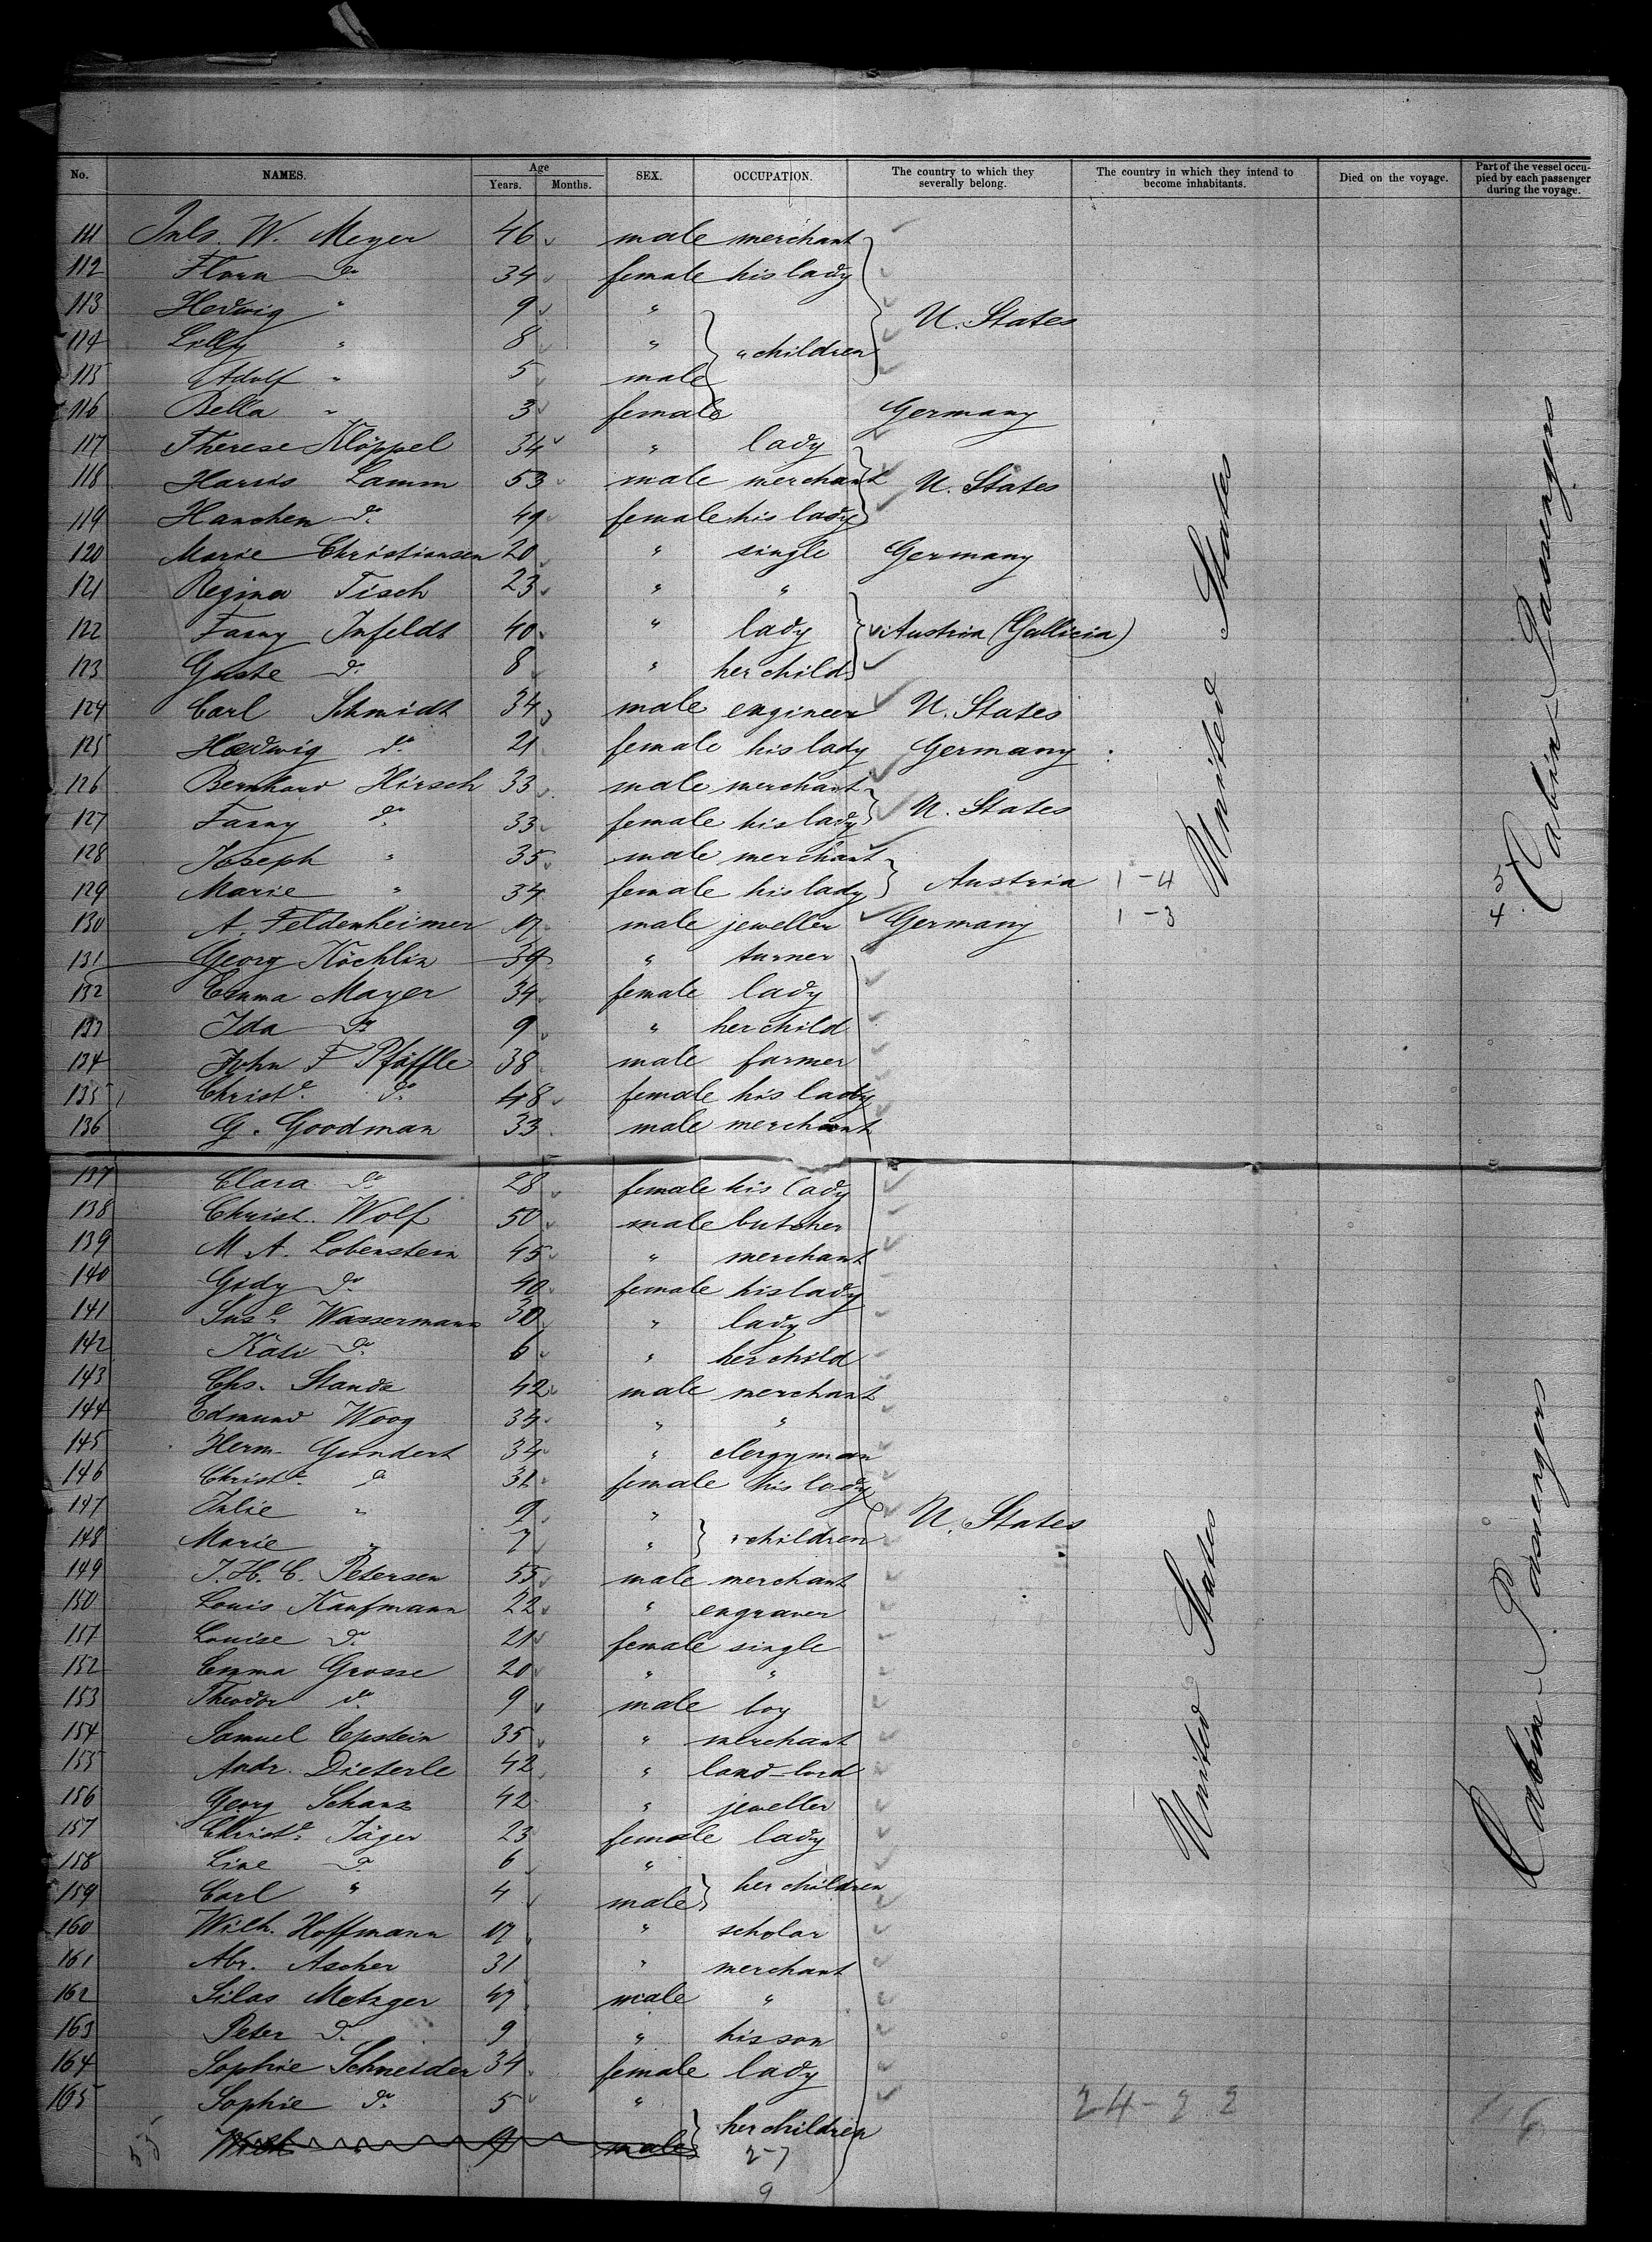 No. NAMES. Age Years. Months. SEX. OCCUPATION. The country to which they severally belong. The country in which they intend to become inhabitants. Died on the voyage. Part of the vessel occupied by each passenger during the voyage.
111 Juls. W. Meyer 46 male merchant
112 Flora do 34 female his lady
113 Hedwig " 9 " U. States
114 Lilly " 8 " " children
115 Adolf " 5 male
116 Bella " 3 female Germany
117 Therese Klöppel 34 " lady
118 Harris Lamm 53 male merchant U. States
119 Hanchen do 49 female his lady
120 Marie Christiansen 20 " single Germany
121 Regina Tisch 23 " "
122 Fanny Infeldt 40 " lady Austria (Gallicia)
123 Guste do 8 " her child
124 Carl Schmidt 34 male engineer U. States
125 Hedwig do 21 female his lady Germany
126 Bernhard Hirsch 33 male merchant
127 Fanny do 33 female his lady U. States
128 Joseph " 35 male merchant
129 Marie " 34 female his lady Austria 1-4
130 A. Feldenheimer 17 male jeweller Germany 1-3
131 Georg Köchlin 39 " turner
132 Emma Mayer 34 female lady
133 Ida do 9 " her child
134 John F Pfäffle 38 male farmer
135 Christe. do 48 female his lady
136 G. Goodman 33 male merchant
137 Clara do 28 female his lady
138 Christ. Wolf 50 male butcher
139 M. A. Lobenstein 45 " merchant
140 Gidy do 40 female his lady
141 Suse. Wassermann 30 " lady
142 Kati do 6 " her child
143 Chs. Stande 42 male merchant
144 Edmund Woog 34 " "
145 Herm. Gundert 34 " clergyman
146 Christe. do 31 female his lady
147 Julie " 9 " U. States
148 Marie " 7 " " children
149 J. H. C. Petersen 55 male merchant
150 Louis Kaufmann 22 " engraver
151 Louise do 21 female single
152 Emma Grosse 20 " "
153 Theodor do 9 male boy
154 Samuel Epstein 35 " merchant
155 Andr. Dieterle 42 " land-lord
156 Georg Schanz 42 " jeweller
157 Christe. Jäger 23 female lady
158 Line do 6 "
159 Carl " 4 male her children
160 Wilh. Hoffmann 17 " scholar
161 Abr. Ascher 31 " merchant
162 Silas Metzger 47 male "
163 Peter do 9 " his son
164 Sophie Schneider 34 female lady
165 Sophie do 5 " 24-22
Wilh " 9 male her children
55
2-7
9
United States
United States
5
4
Cabin Passengers
Cabin Passengers